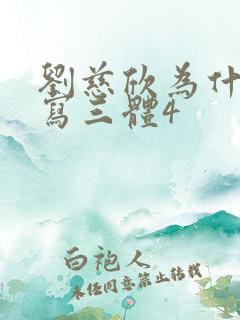 劉慈欣為什
寫三體4
白袍人
未經同意禁止轉載